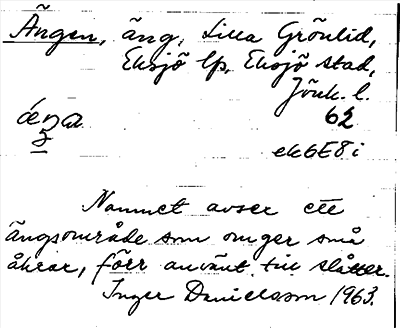 Ängen, äng, Lilla Grönlid,
Eksjö lfs, Eksjö stad,
Jönk. l.
62
ek6E8i
Namnet avser ett
ängsområde som omger små
åkrar, förr använt till slåtter.
Inger Danielsson 1963.